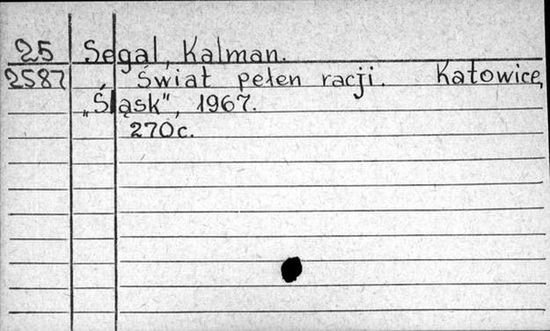 25 Segal, Kalman.
2587 Świat pełen racji. Katowice,
„Śląsk", 1967.
270c.